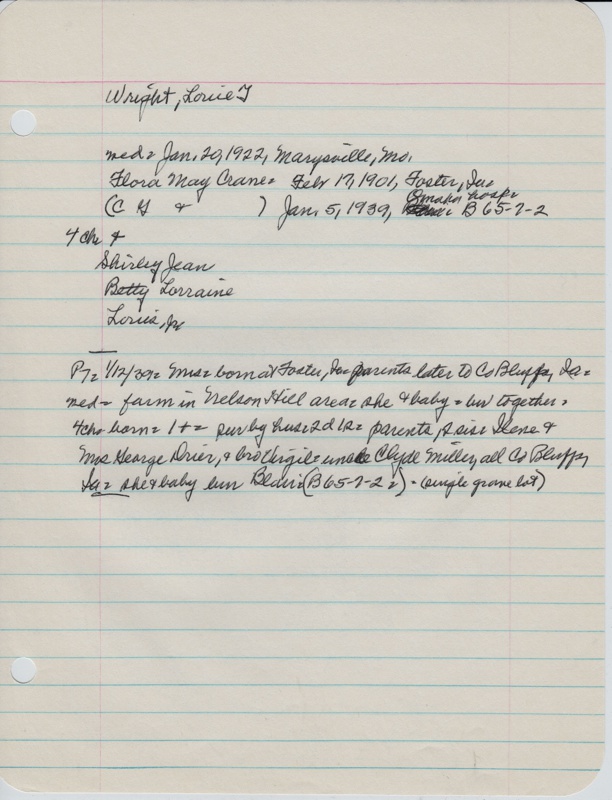 Wright, Louie J
med= Jan. 20, 1922, Marysville, Mo.
Flora May Crane= Feb 17, 1901, Foster, Ia=
Omaha hosp=
(C G & ) Jan. 5, 1939, B 65-7-2
4 ch= &
Shirley Jean
Betty Lorraine
Louis, Jr
PT= 1/12/39= Mrs= born at Foster, Ia= parents later to Co Bluffs, Ia=
med= farm in Nelson Hill area= she & baby= bur together=
4 ch= born= 1 += sur by hus= 2 d 1 s= parents, sis= Ilene &
Mrs George Drier, & bro Virgil= uncle Clyde Miller, all Co Bluffs,
Ia= she & baby bur Blair= (B 65-7-2=) = (single grave lot)